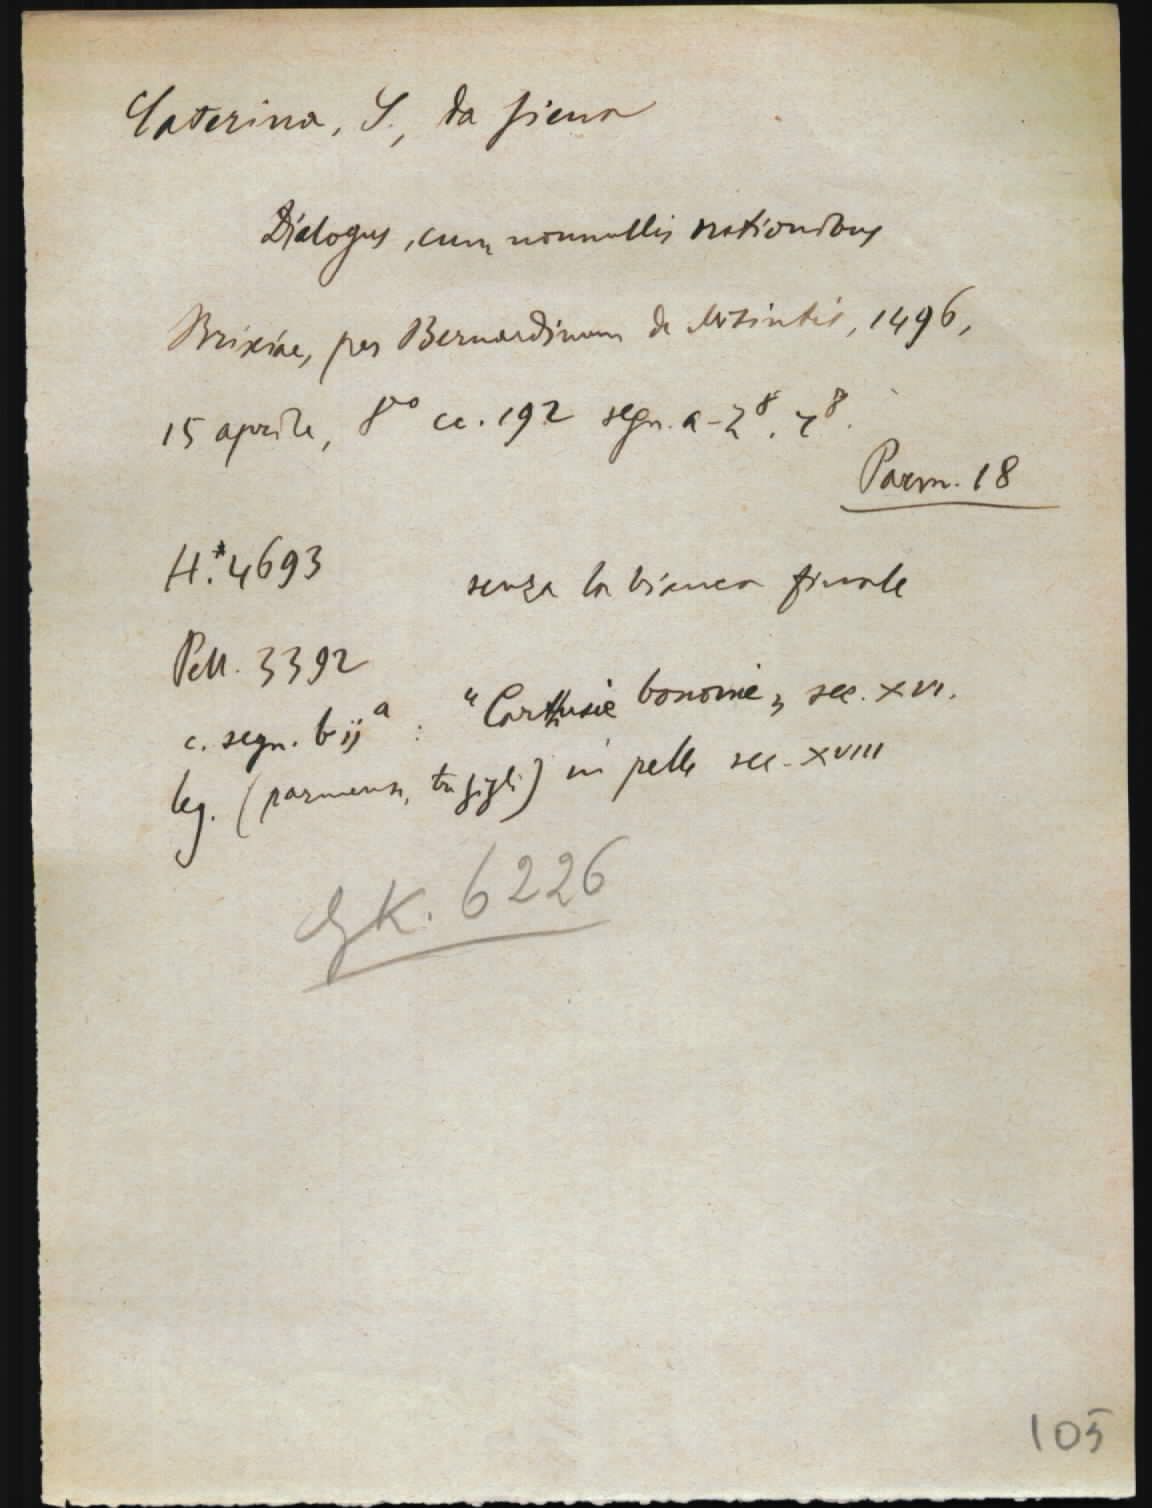 Caterina, S., da Siena
Dialogus, cum nonnullis orationibus
Brixiae, per Bernardinum de Misintis, 1496,
15 aprile, 8vo cc. 192 segn. a-z8. 48.
Parm. 18
H.*4693
senza la bianca finale
Pell. 3392
c. segn. b ijª : "Carthusie bononie" sec. XVI.
leg. (parmense, tre gigli) in pelle sec. XVIII
GK. 6226
105